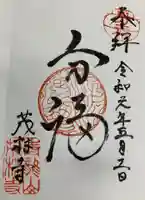 奉拝
令和元年五月 日
分福
茂林寺